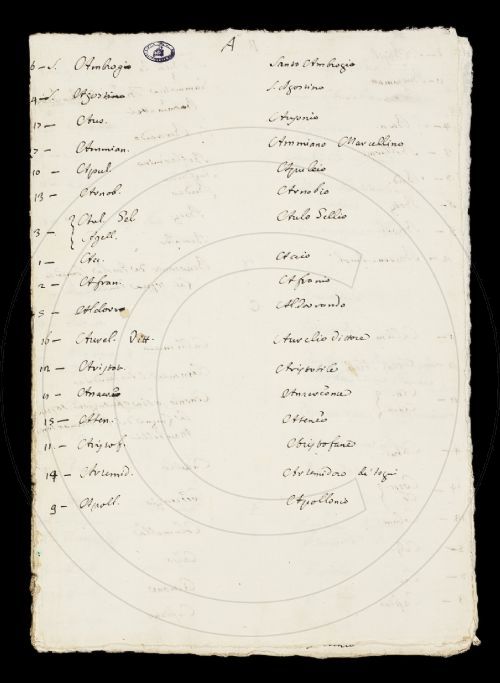 A
6 – S. Ambrogio Santo Ambrogio
4 – S. Agostino S. Agostino
17 – Aus. Ausonio
7 – Ammian. Ammiano Marcellino
10 – Apul. Apuleio
13 – Arnob. Arnobio
3 – Aul. Gel Aulo Gellio
Agell.
1 – Acc. Accio
2 – Afran. Afranio
5 – Aldovra Aldovrando
16 – Aurel. Vitt. Aurelio Vittore
12 – Aristot. Aristotile
Anacreo Anacreonte
15 – Aten. Ateneo
11 – Aristof. Aristofane
14 – Artemid. Artemidoro de' sogni
9 – Apoll. Apollonio